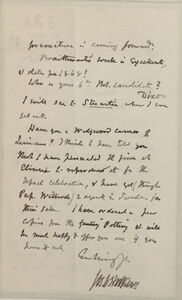 promotion is coming forward.
Braithwaite's work is excellent,
& dates Jan 1868!
Who is your 6th Bot. candidate?
Dixon
I will see to Stuartia when I can
get out.
Have you a Wedgwood cameo of
Linnaeus? I think I have told you
that I have persuaded the firm at
Etruria to reproduce it for the
Upsal celebration, & have got (through
Prof. Wittrock) an agent in Sweden for
their sale. I have ordered a few
copies from the Pottery & will
be most happy to offer you one if you
have it not.
Ever sincerely yrs
Jos D Hooker